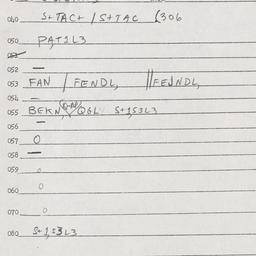 040 S+TAC+ / S+TAC (306
050 PAT1L3
052 —
053 FAN / FENDL, ||FEJNDL,
054 —
055 BEKN, QGL S+1S3L3
056 —
057 O
058 —
059 O
060 O
070 O
080 S+1=3L3